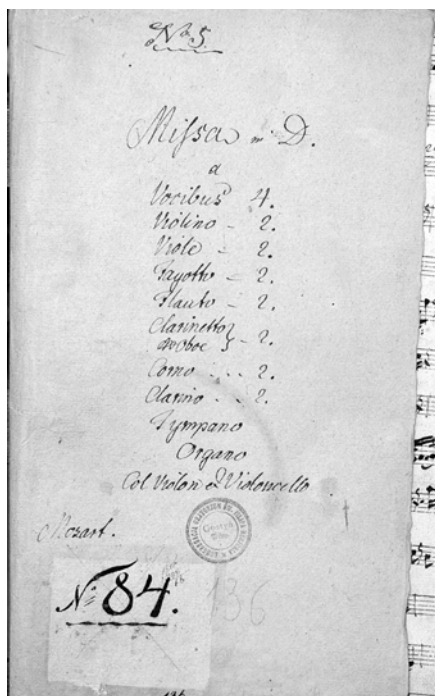 No 5
Missa in D.
a
Vocibus 4.
Violino - 2.
Viole - 2.
Fagotto - 2.
Flauto - 2.
Clarinetto
Oboe } - 2.
Corno . . . 2.
Clarino . . 2.
Tympano
Organo
Col Violon et Violoncello
Mozart.
No 84.
136